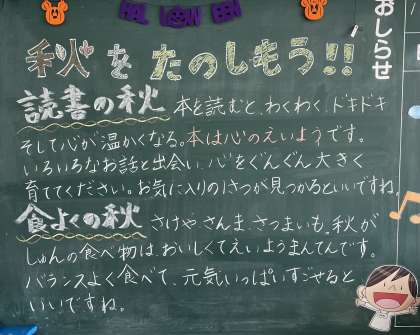 HALLOWEEN
おしらせ
秋をたのしもう!!
読書の秋 本を読むと、わくわく、ドキドキ
そして心が温かくなる。本は心のえいようです。
いろいろなお話と出会い、心をぐんぐん大きく
育ててください。お気に入りの1さつが見つかるといいですね。
食よくの秋 さけや、さんま、さつまいも、秋が
しゅんの食べ物は、おいしくてえいようまんてんです。
バランスよく食べて、元気いっぱいすごせると
いいですね。